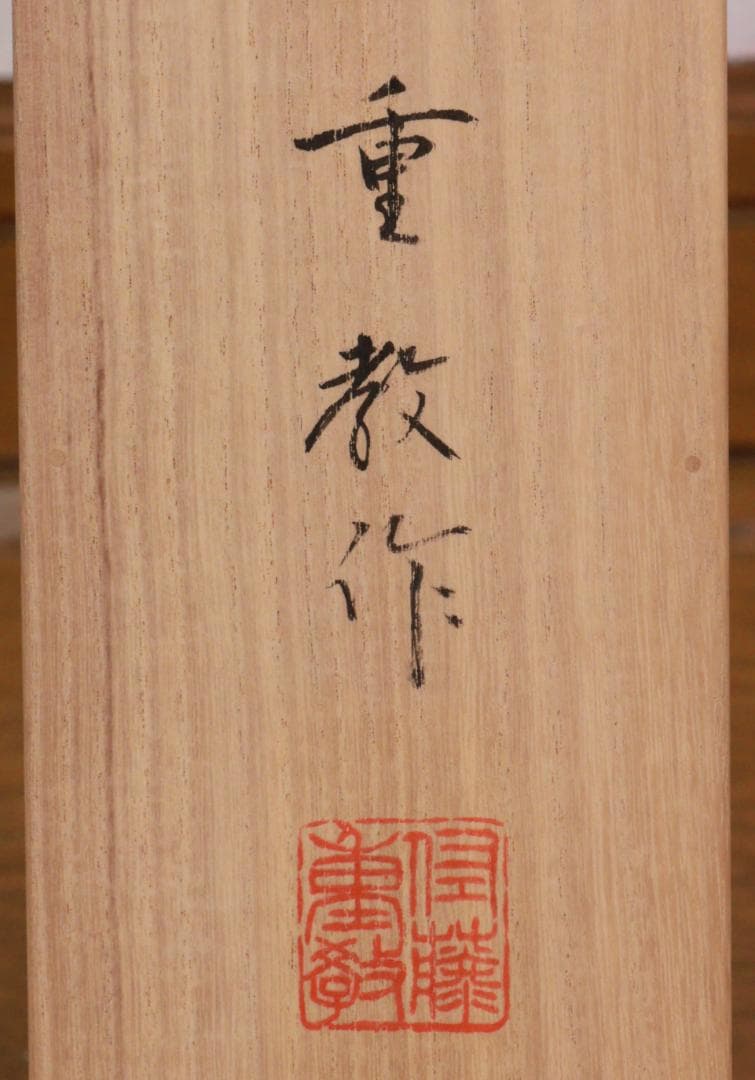 重教作
伊藤重教